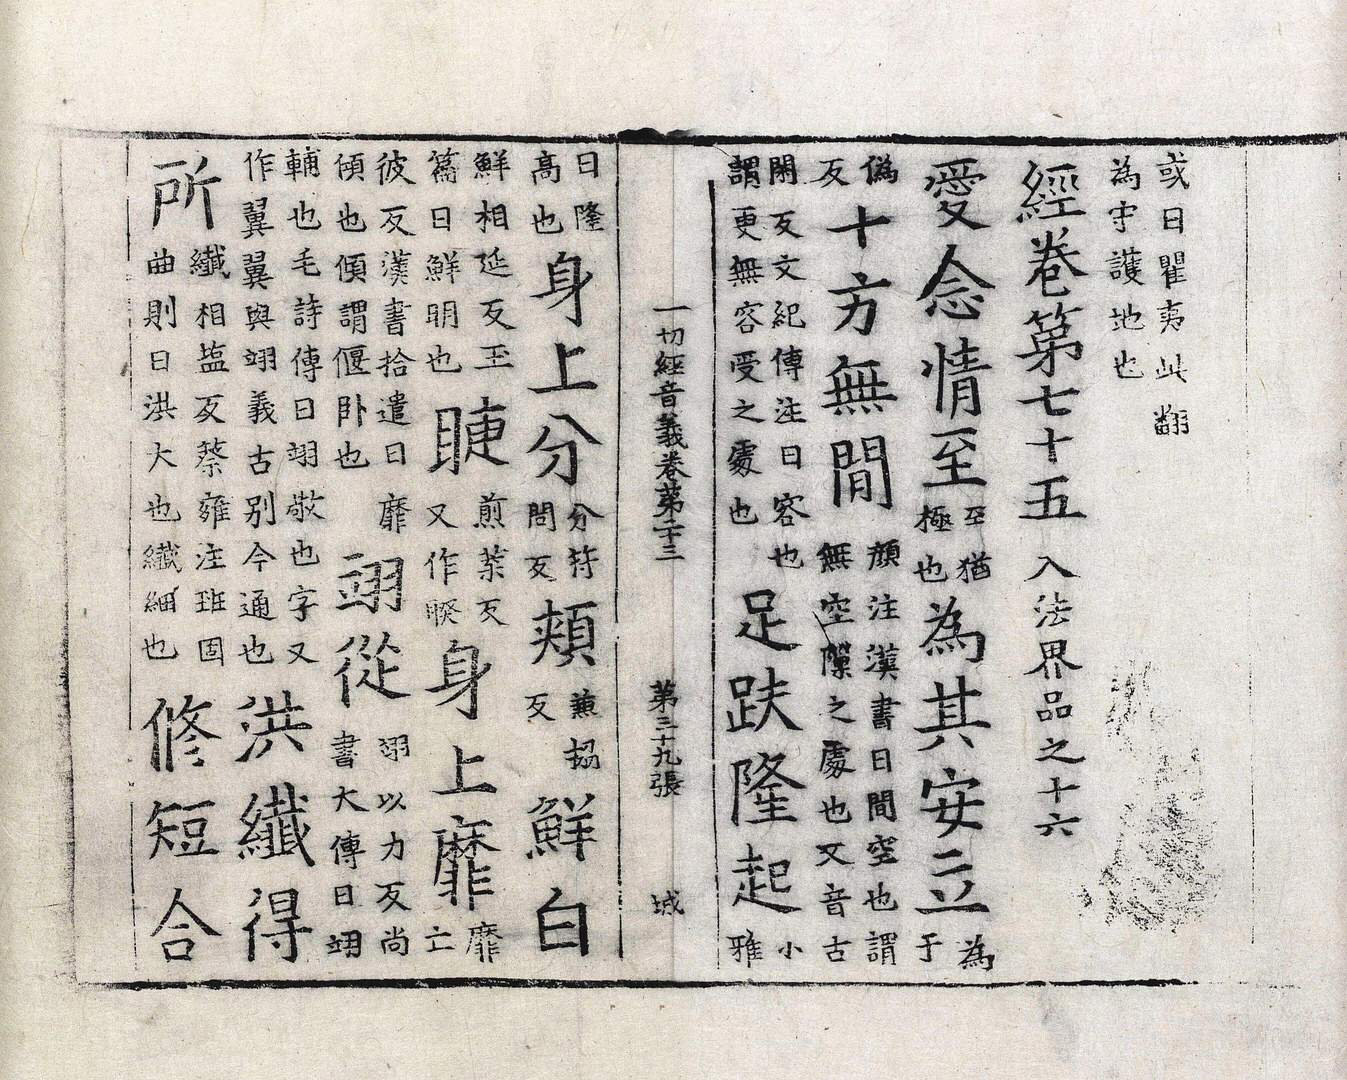 或曰瞿夷此翻
為守護地也
經卷第七十五 入法界品之十六
愛念情至 至猶極也 為其安立 為于
偽反 十方無間 顏注漢書曰間空也謂無空隙之處也又音古
閑反文紀傳注曰容也謂更無容受之處也 足趺隆起 小雅
一切經音義卷第二十三 第三十九張 城
曰隆高也 身上分 分符問反 頰 兼協反 鮮白
鮮相延反玉篇曰鮮明也 睫 煎葉反又作䀹 身上靡 靡亡
彼反漢書拾遺曰靡傾也傾謂偃卧也 翊從 翊以力反尚書大傳曰翊
輔也毛詩傳曰翊敬也字又作翼翼與翊義古別今通也 洪纖得
所 纖相塩反蔡雍注班固曲則曰洪大也纖細也 脩短合